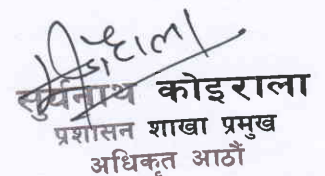 सुर्यनाथ कोइराला
प्रशासन शाखा प्रमुख
अधिकृत आठौं